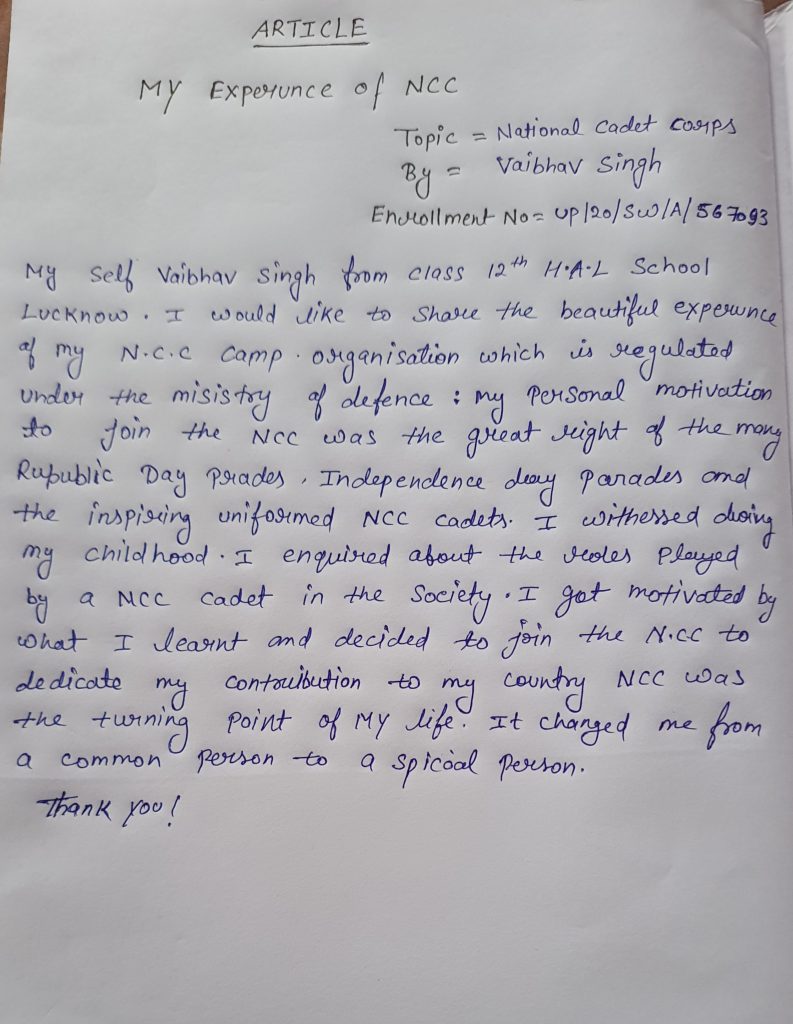 ARTICLE
My Experunce of NCC
Topic = National Cadet Corps
By = Vaibhav Singh
Enrollment No = UP/20/SW/A/567093
My Self Vaibhav Singh from class 12th H.A.L School
Lucknow. I would like to Share the beautiful experunce
of my N.C.C Camp. organisation which is regulated
under the misistry of defence : my Personal motivation
to join the NCC was the great right of the many
Rupublic Day Prades, Independence day parades and
the inspiring uniformed NCC cadets. I withessed duoing
my childhood. I enquired about the roles Played
by a NCC cadet in the Society. I got motivated by
what I learnt and decided to join the N.CC to
dedicate my contribution to my country NCC was
the turning Point of My life. It changed me from
a common Person to a spicial Person.
Thank you!